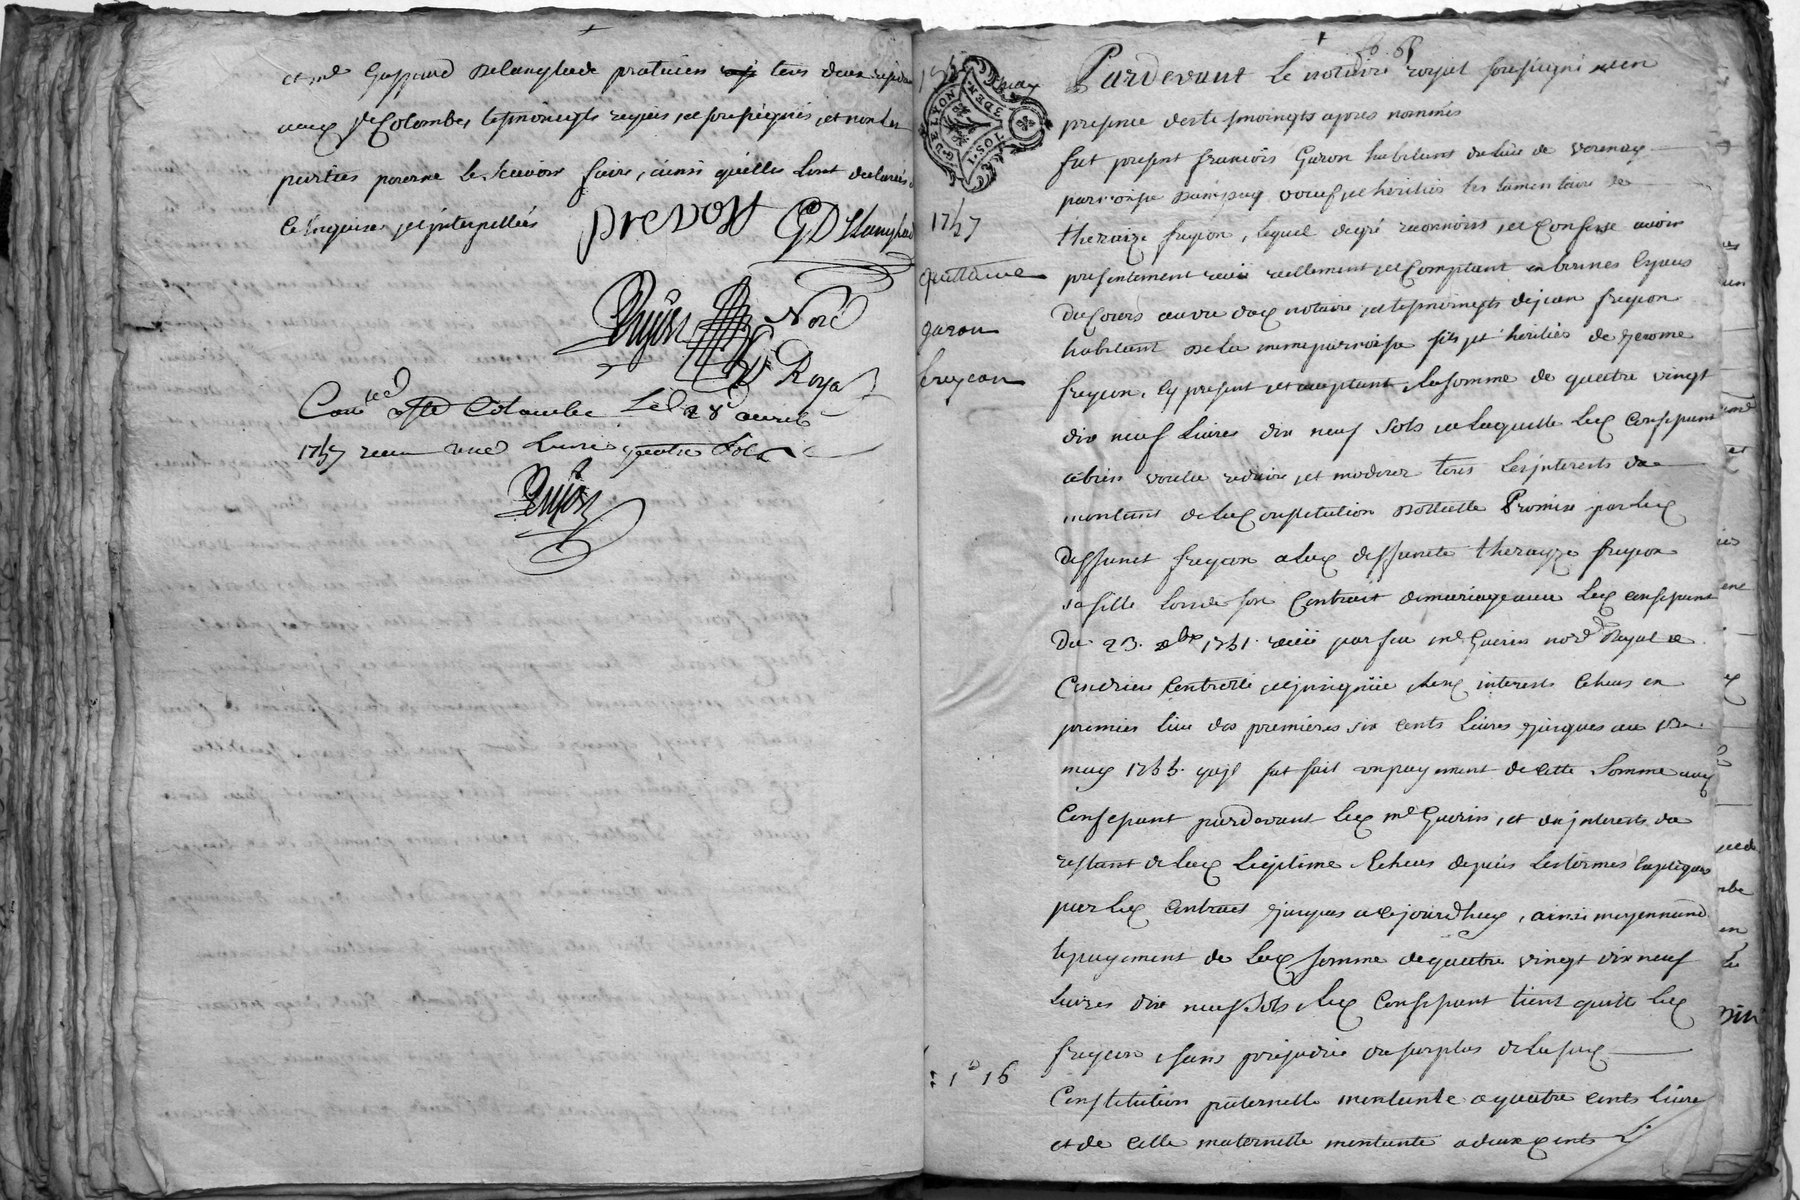 et me Gaspard Delanglade praticien tous deux
aux ste Colombe, tesmoingts requis et soussignés, et non les
parties pour ne le scavoir faire, ainsi qu'elles l'ont declarés
ce enquises et interpellées
prevost GDelanglade
Dujon Nore
Royal
Conlé a Ste Colombe Le 28e avril
1757 receu une livre quatre sols
Dujon
G. DE LYON
1757
quittance
garon
freycon
1d 16
Pardevant Le notaire royal soussigné et en
presence des tesmoingts apres nommés
fut present francois Garon habitant du lieu de verenay
parroisse dampuy veuf et heritier testamentaire de
theraize freycon, lequel de gré reconnoist et confesse avoir
presentement receü reellement et comptant en bonnes espeus
du cours au veu dud notaire et tesmoingts de jean freycon
habitant de la meme parroisse fils et heritier de jerome
freycon, cy present et acceptant, la somme de quatre vingt
dix neuf Livres dix neuf sols a laquelle led confessant
a bien voulu reduire et moderer tous les jnterests du
montant de la Constitution dottalle Promise par led
deffunct freycon a lad deffuncte therayze freycon
sa fille lors de son Contract de mariage avec led confessant
du 23. xbre 1751. receü par feu me Guerin nore Royal a
Condrieu Controllé et jnsignüé, iceux interests écheus en
premier lieu des premieres six cents livres jusques au
may 1755. qu'jl fut fait un payement de cette somme aud
Confessant pardevant led me Guerin, et en jnterests du
restant de lad Legitime écheus depuis les termes expliqués
par led Contract jusques a cejourdhuy, ainsi moyennant
le payement de lad somme de quatre vingt dix neuf
livres dix neuf sols, led Confessant tient quitte led
freycon, sans prejudice du surplus de lad
Constitution paternelle montante a quatre cents livres
et de celle maternelle montante a deux cents L.